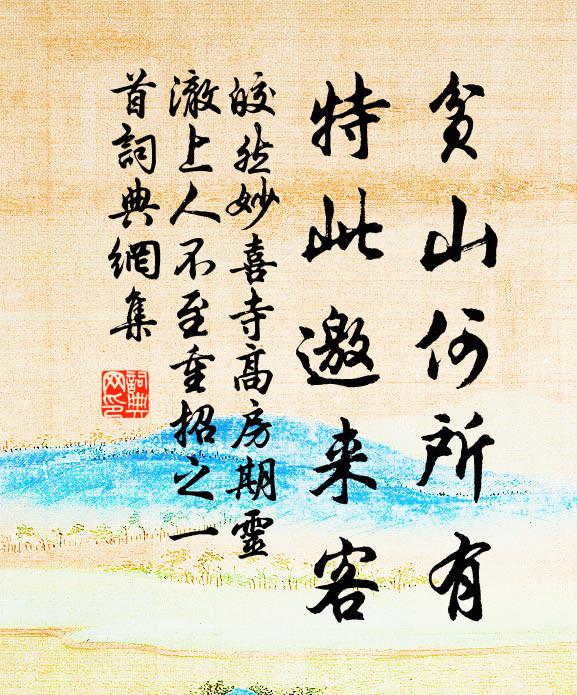 貧山何所有
特此邀来客
皎然妙喜寺高房期靈
澈上人不至重招之一
首詞典網集
詞典
网印